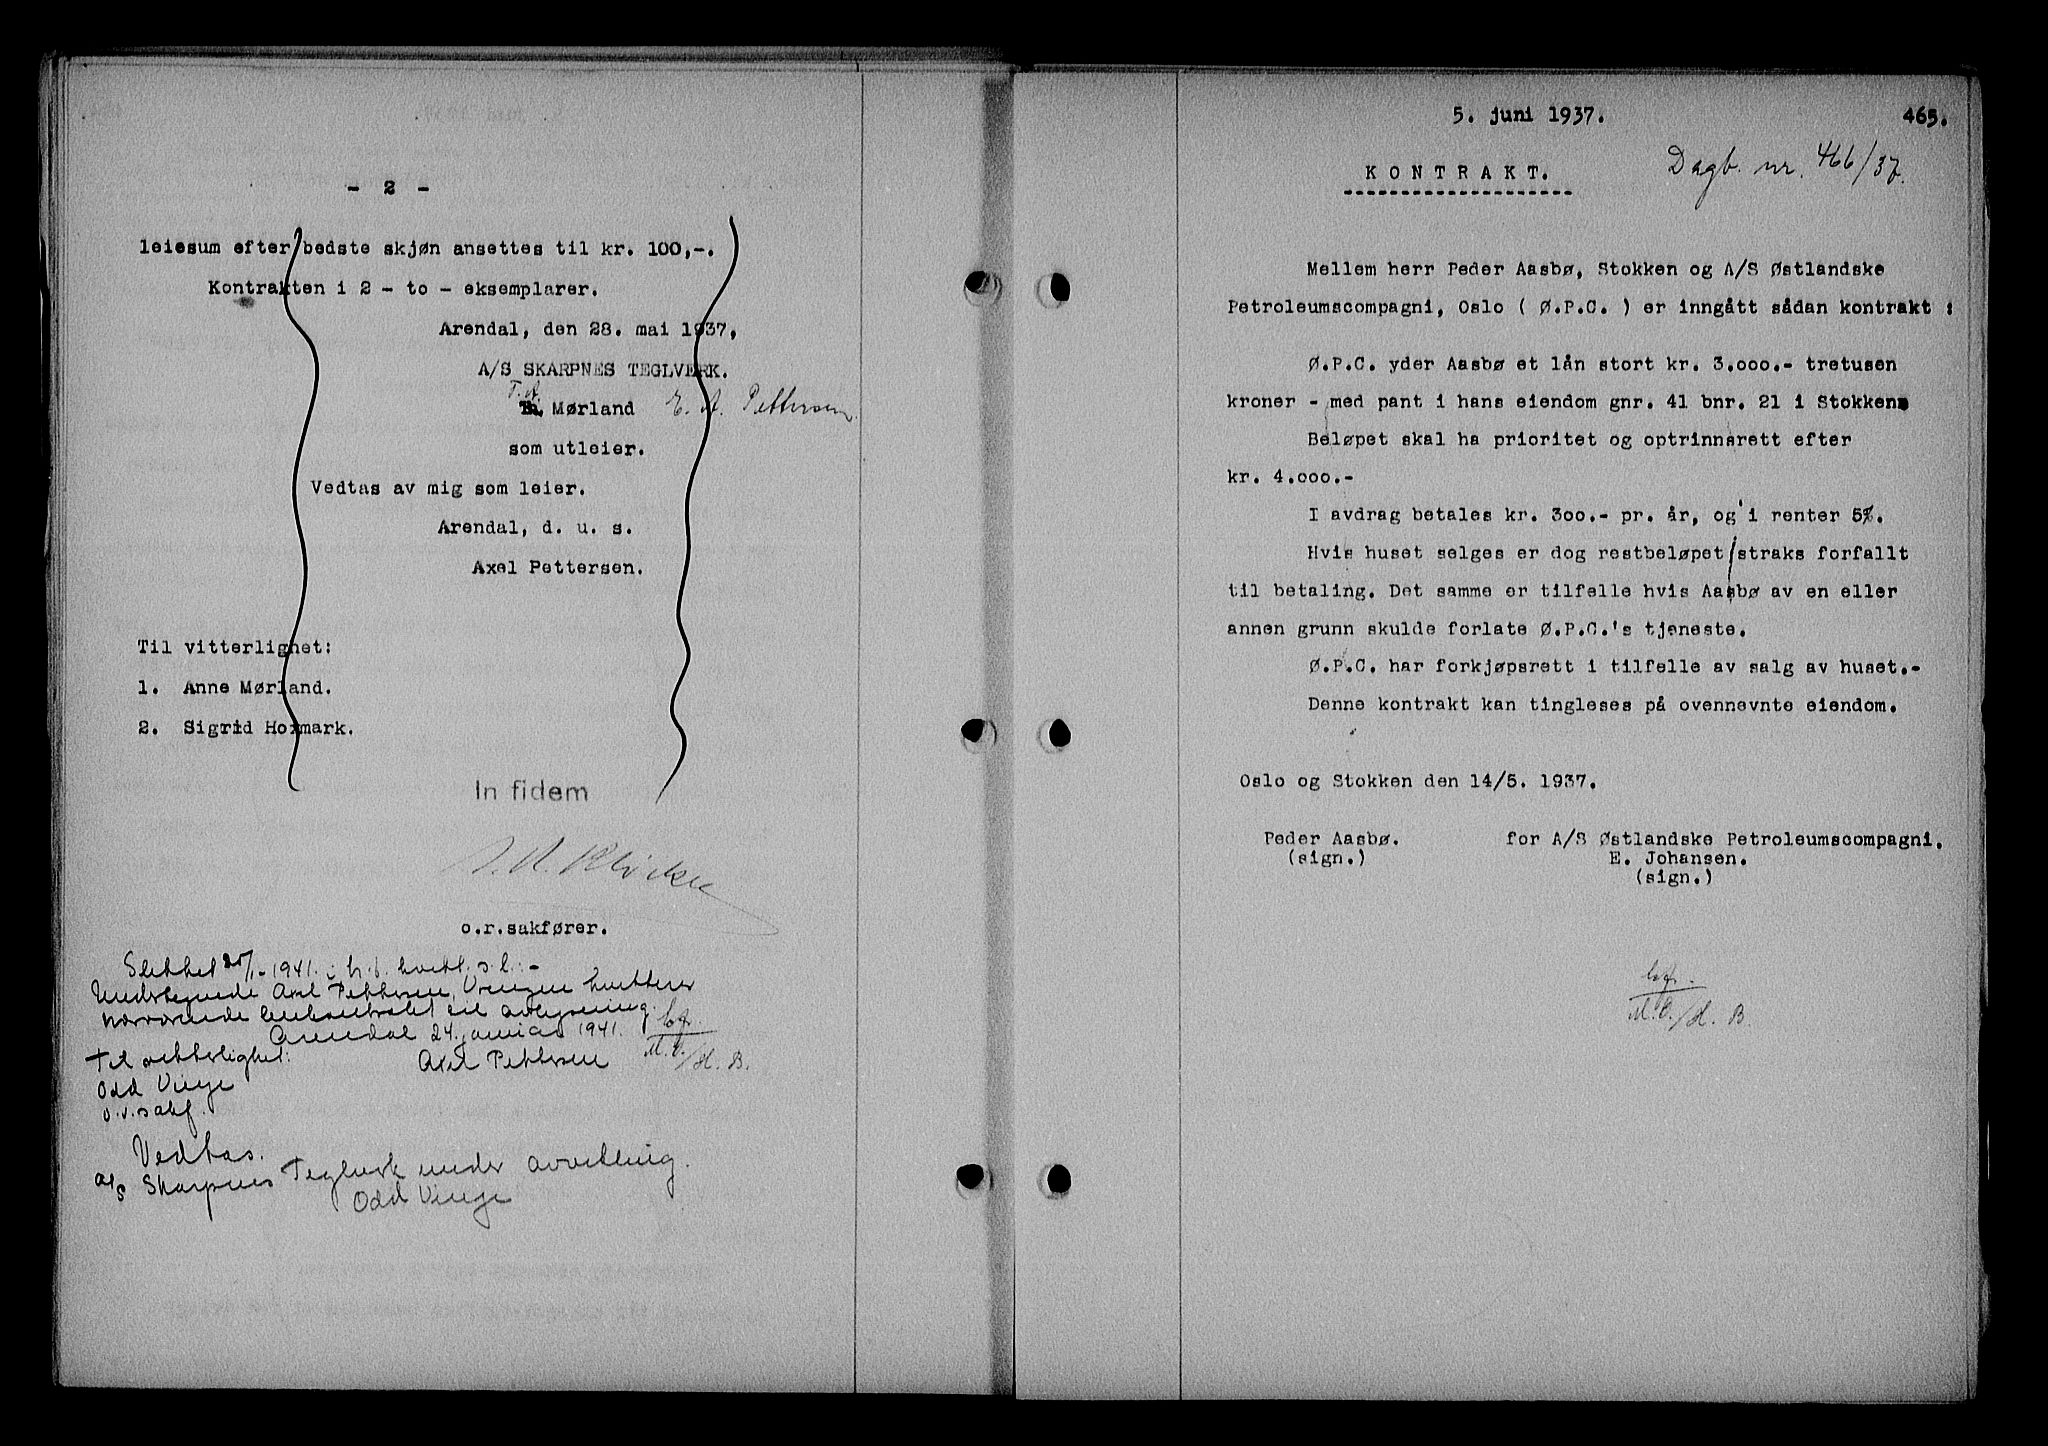 - 2 -
leiesum efter bedste skjøn ansettes til kr. 100,-.
Kontrakten i 2 - to - eksemplarer.
Arendal, den 28. mai 1937,
A/S SKARPNES TEGLVERK.
T.A. Mørland E. A. Pettersen
som utleier.
Vedtas av mig som leier.
Arendal, d. u. s.
Axel Pettersen.
Til vitterlighet:
1. Anne Mørland.
2. Sigrid Hoxmark.
In fidem
o.r.sakfører.
Slettet 25/1-1941 i h. t. kvitt. s.l.:-
Undertegnede Axel Pettersen, Vrengen kvitterer
nærværende leiekontrakt til avlysning.
Arendal 24. januar 1941.
Til vitterlighet: Axel Pettersen
Odd Vinje
o.r.sakf.
bf.
M.O./H.B.
Vedtas.
A/S Skarpnes Teglverk under avvikling.
Odd Vinje
5. juni 1937. 465.
KONTRAKT. Dagb. nr. 466/37.
Mellem herr Peder Aasbø, Stokken og A/S Østlandske
Petroleumscompagni, Oslo ( Ø.P.C. ) er inngått sådan kontrakt :
Ø.P.C. yder Aasbø et lån stort kr. 3.000.- tretusen
kroner - med pant i hans eiendom gnr. 41 bnr. 21 i Stokken
Beløpet skal ha prioritet og optrinnsrett efter
kr. 4.000.-
I avdrag betales kr. 300.- pr. år, og i renter 5%.
Hvis huset selges er dog restbeløpet straks forfallt
til betaling. Det samme er tilfelle hvis Aasbø av en eller
annen grunn skulde forlate Ø.P.C.'s tjeneste.
Ø.P.C. har forkjøpsrett i tilfelle av salg av huset.-
Denne kontrakt kan tingleses på ovennevnte eiendom.
Oslo og Stokken den 14/5. 1937.
Peder Aasbø. for A/S Østlandske Petroleumscompagni.
(sign.) E. Johansen.
(sign.)
bf.
M.O./H.B.